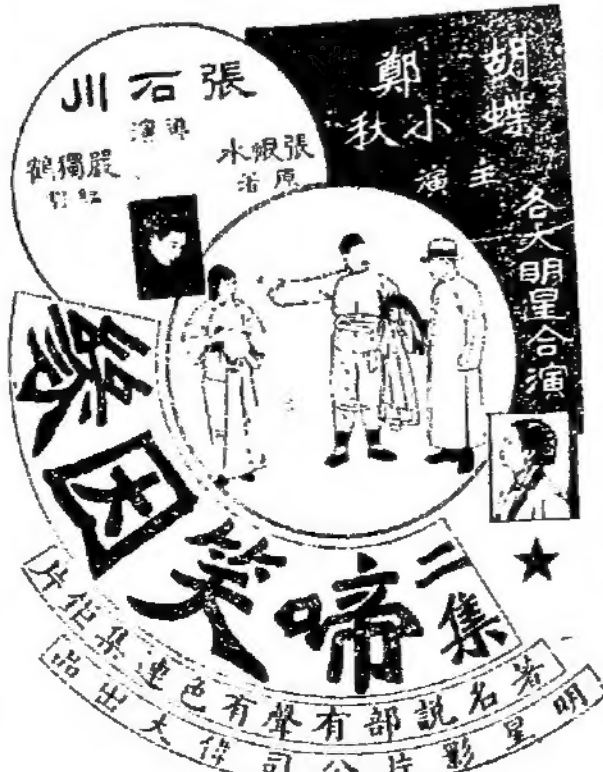 胡蝶
鄭小秋
主演
各大明星合演
張石川
導演
張恨水
原著
嚴獨鶴
編劇
二集
啼笑因緣
著名說部有聲有色連集佳片
明星影片公司偉大出品